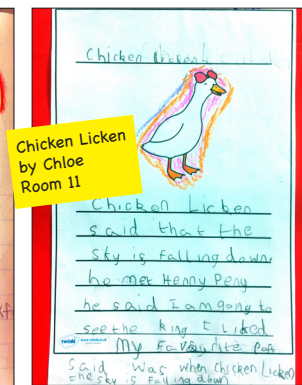 Chicken licken
Chicken Licken
by Chloe
Room 11
Chicken Licken
said that the
sky is falling down
he met Henny Peny
he said I am gang to
see the king I liked
My Favourite Part
Said Was when Chicken Licken
the sky is Falling down
twinkl